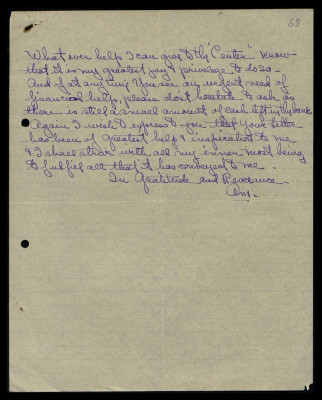 68
What ever help I can give to thy Center" Know
that it is my greatest joy & priveledge to do so -
And if at any time You see any urgent need of
financial help, please don't hesitate to ask as
there is still a small amount of cash left in thy bank
Again I wish to express to you that Your letter
has been of greatest help & inspiration to me
& I shall strive with all my innermost being
to fulfill all that it has conveyed to me.
In Gratitude and Reverance